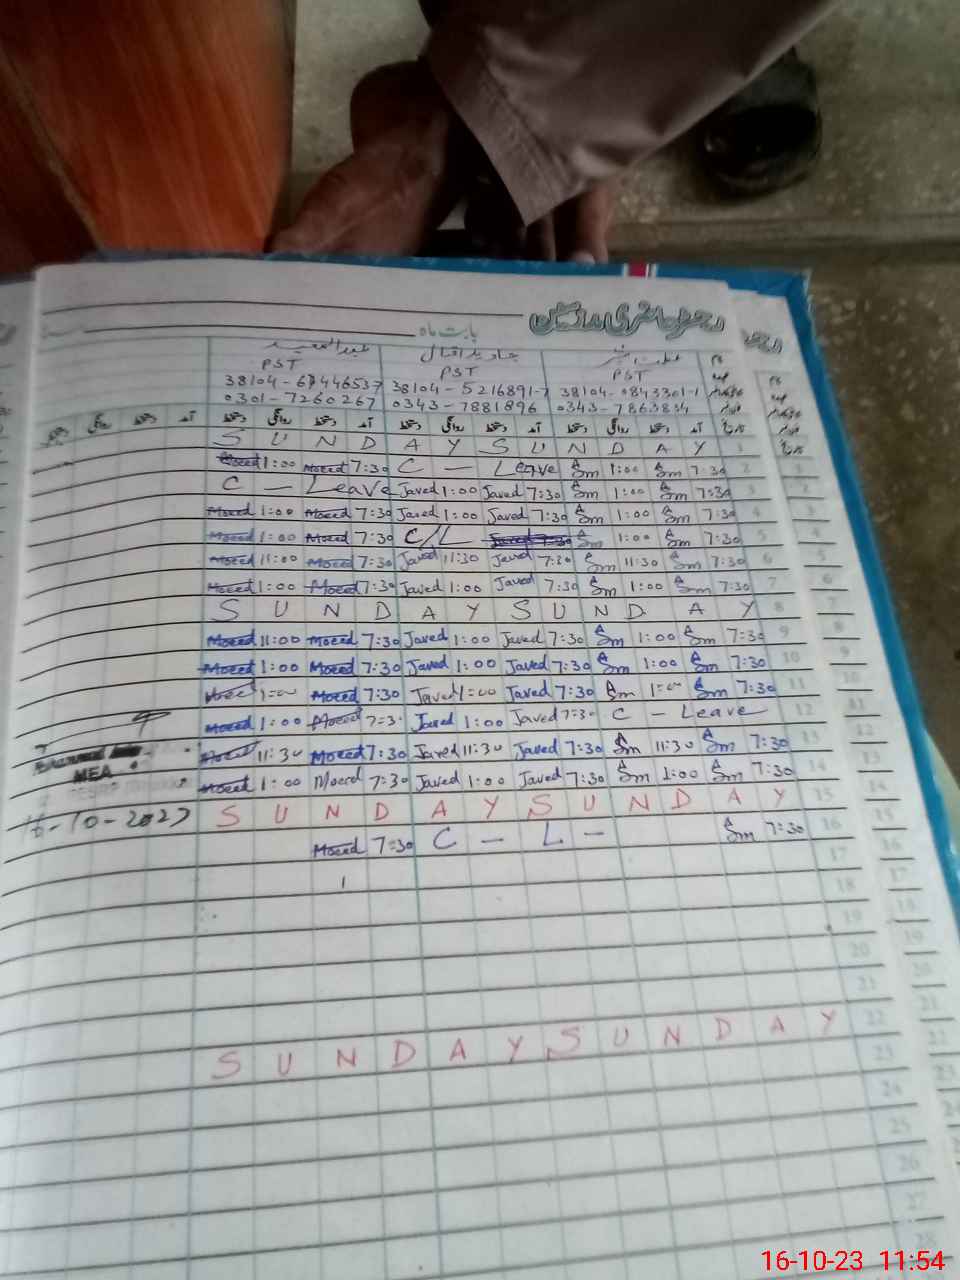 رجسٹر حاضری مدرسین
بابت ماہ
جاوید اقبال
PST PST PST
38104-67446537 38104-5216891-7 38104-0843301-1
0301-7260267 0343-7881896 0343-7863834
دستخط روانگی دستخط آمد دستخط روانگی دستخط آمد دستخط روانگی دستخط آمد
S U N D A Y S U N D A Y 1
Moeed 1:00 Moeed 7:30 C - Leave Sm 1:00 Sm 7:30 2
C - Leave Javed 1:00 Javed 7:30 Sm 1:00 Sm 7:30 3
Moeed 1:00 Moeed 7:30 Javed 1:00 Javed 7:30 Sm 1:00 Sm 7:30 4
Moeed 1:00 Moeed 7:30 C/L Sm 1:00 Sm 7:30 5
Moeed 11:00 Moeed 7:30 Javed 11:30 Javed 7:30 Sm 11:30 Sm 7:30 6
Moeed 1:00 Moeed 7:30 Javed 1:00 Javed 7:30 Sm 1:00 Sm 7:30 7
S U N D A Y S U N D A Y 8
Moeed 11:00 Moeed 7:30 Javed 1:00 Javed 7:30 Sm 1:00 Sm 7:30 9
Moeed 1:00 Moeed 7:30 Javed 1:00 Javed 7:30 Sm 1:00 Sm 7:30 10
Moeed 1:00 Moeed 7:30 Javed 1:00 Javed 7:30 Sm 1:00 Sm 7:30 11
Moeed 1:00 Moeed 7:30 Javed 1:00 Javed 7:30 C - Leave 12
Moeed 11:30 Moeed 7:30 Javed 11:30 Javed 7:30 Sm 11:30 Sm 7:30 13
MEA
Moeed 1:00 Moeed 7:30 Javed 1:00 Javed 7:30 Sm 1:00 Sm 7:30 14
16-10-2023 S U N D A Y S U N D A Y 15
Moeed 7:30 C - L - Sm 7:30 16
17
18
19
20
21
22
S U N D A Y S U N D A Y 23
24
25
26
27
28
16-10-23 11:54